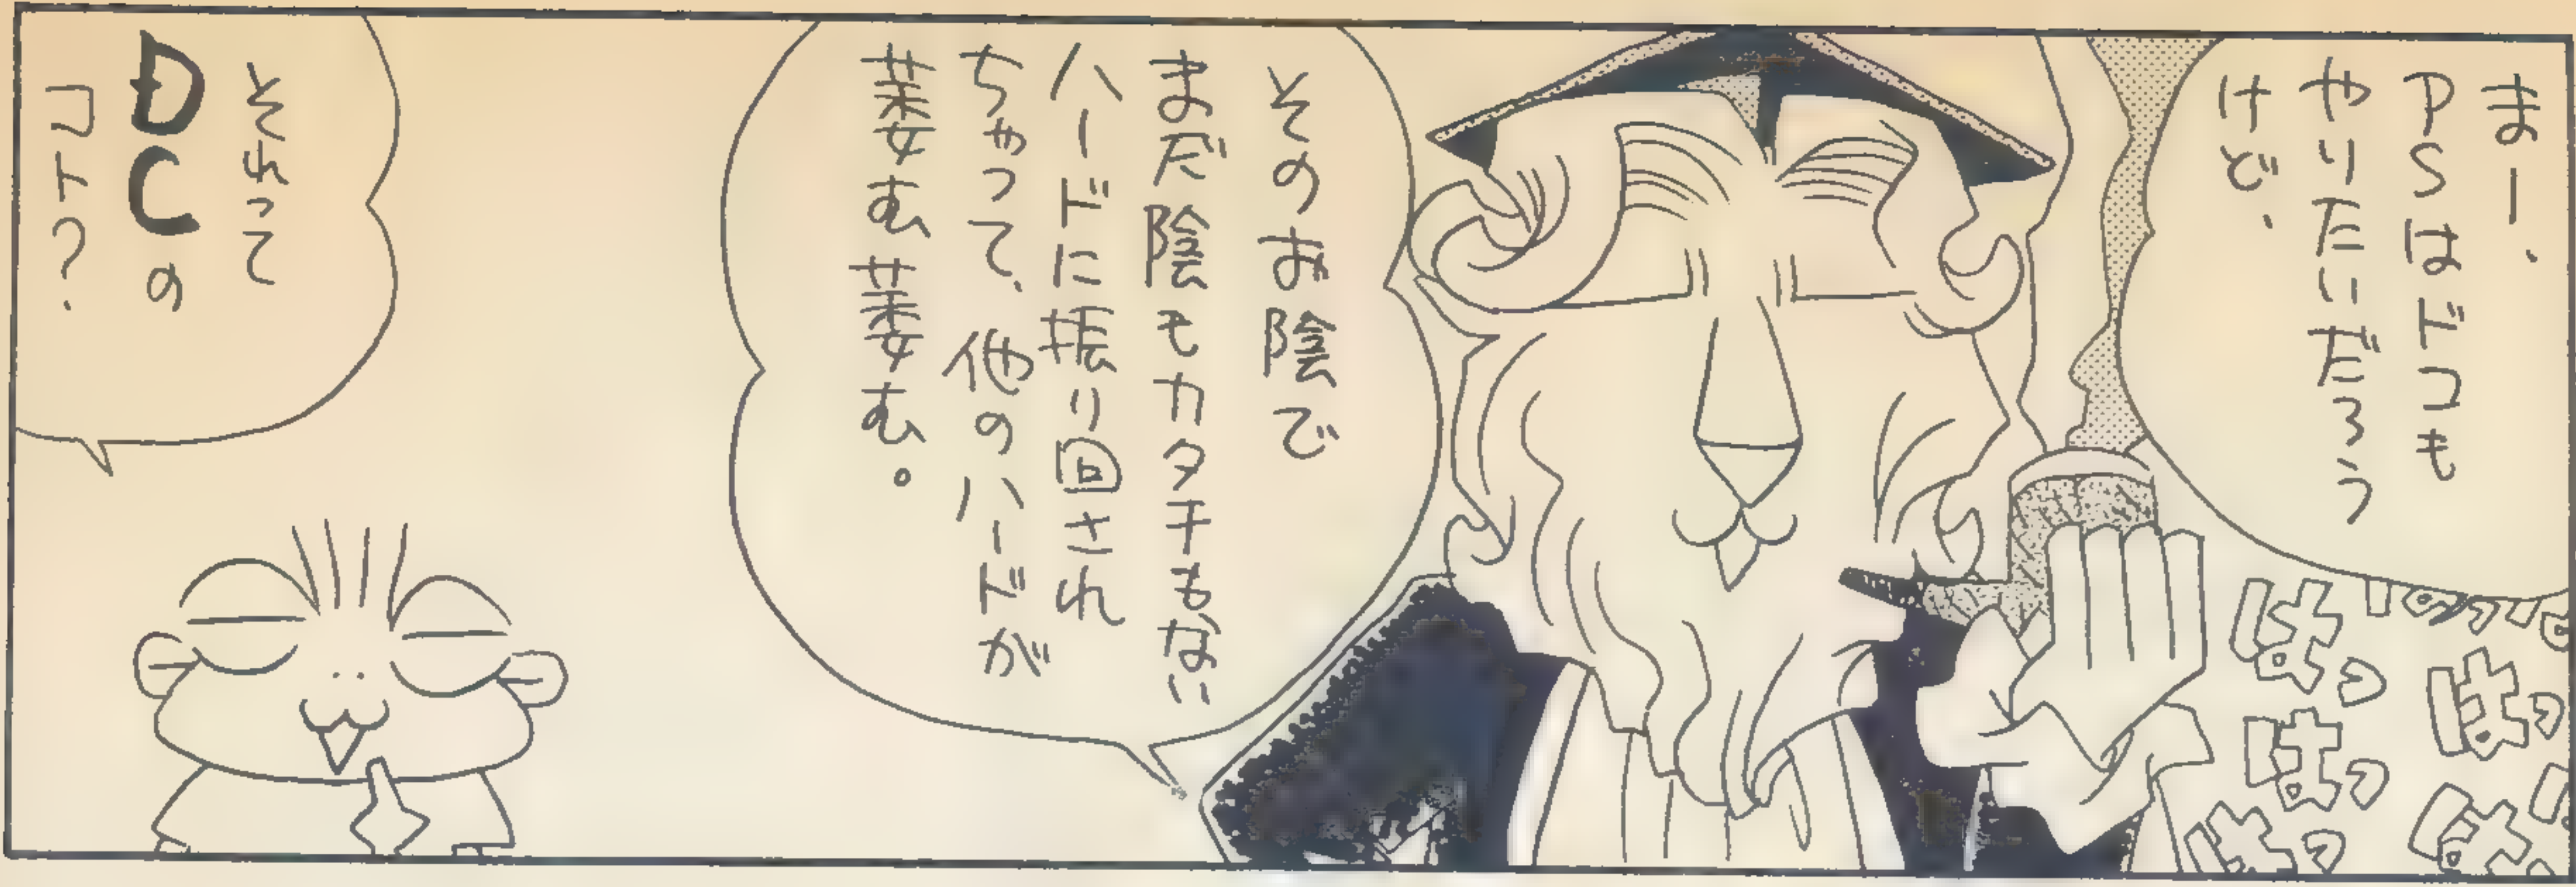 まー、
PSはドコも
やりたいだろう
けど、
はっ
はっ
はっ
はっ
はっ
そのお陰で
まだ陰もカタチもない
ハードに振り回され
ちゃって、他のハードが
萎む萎む。
それって
DCの
コト?